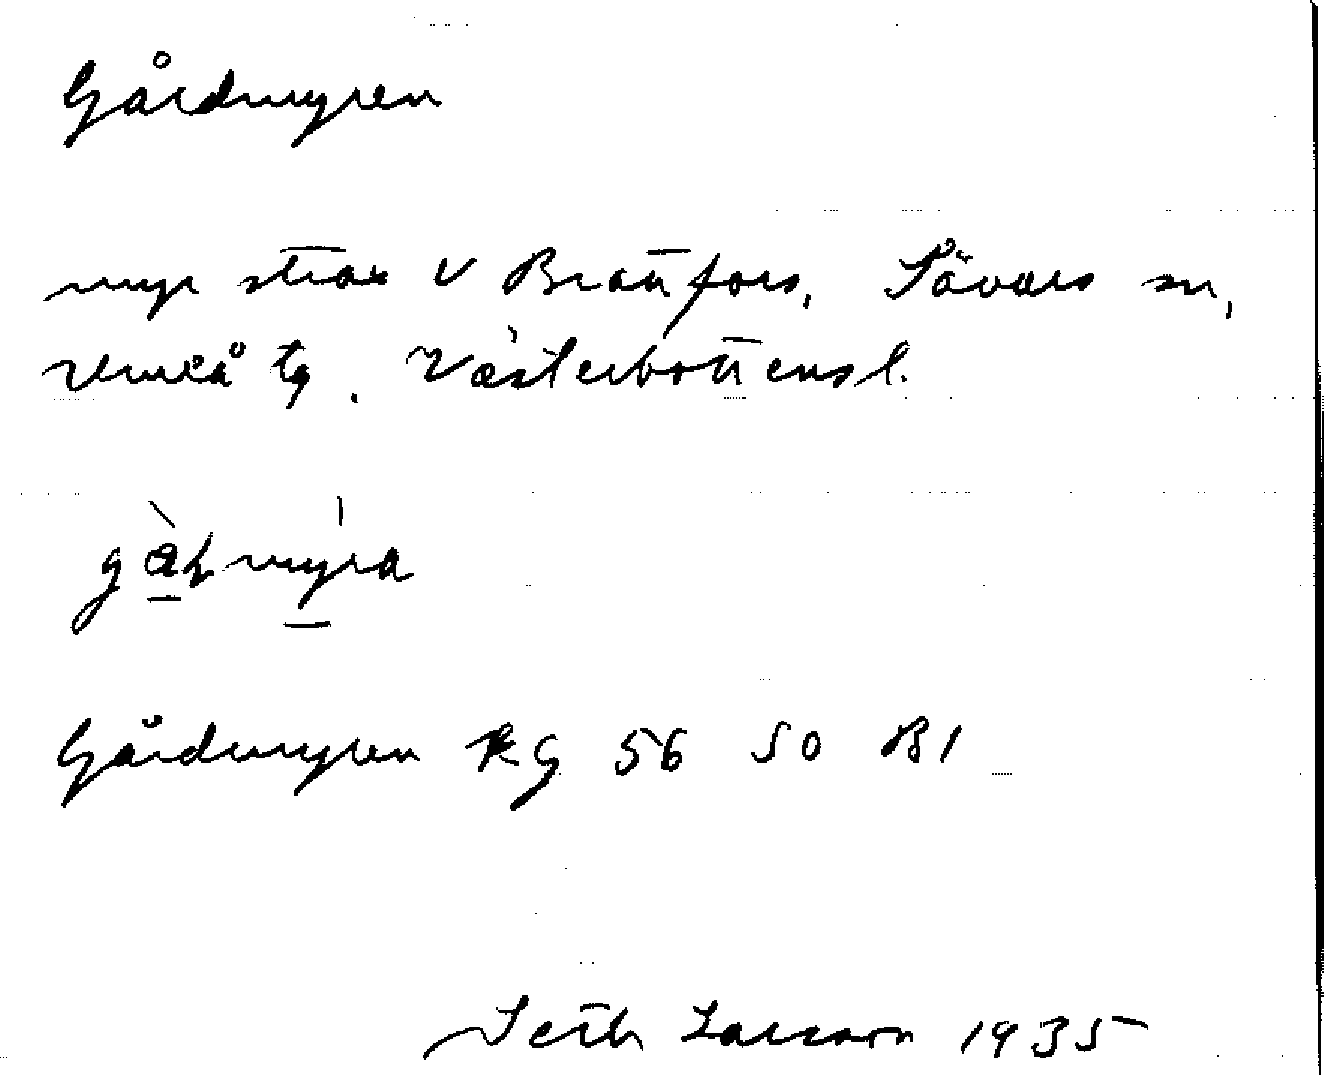 Gårdmyren
myr strax v Brattfors, Sävars sn,
Umeå tg. Västerbottens l.
Gårdmyren RG 56 SO B1
Seth Larsson 1935